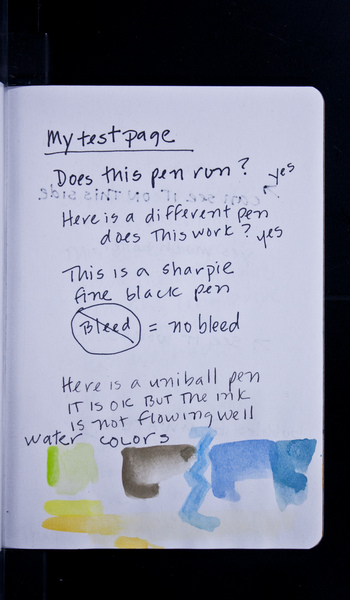 My test page
Does this pen run? yes
can see it on this side
Here is a different pen
does This work? yes
This is a sharpie
fine black pen
Bleed = no bleed
Here is a uniball pen
IT IS OK BUT THE INK
IS not flowing well
water colors